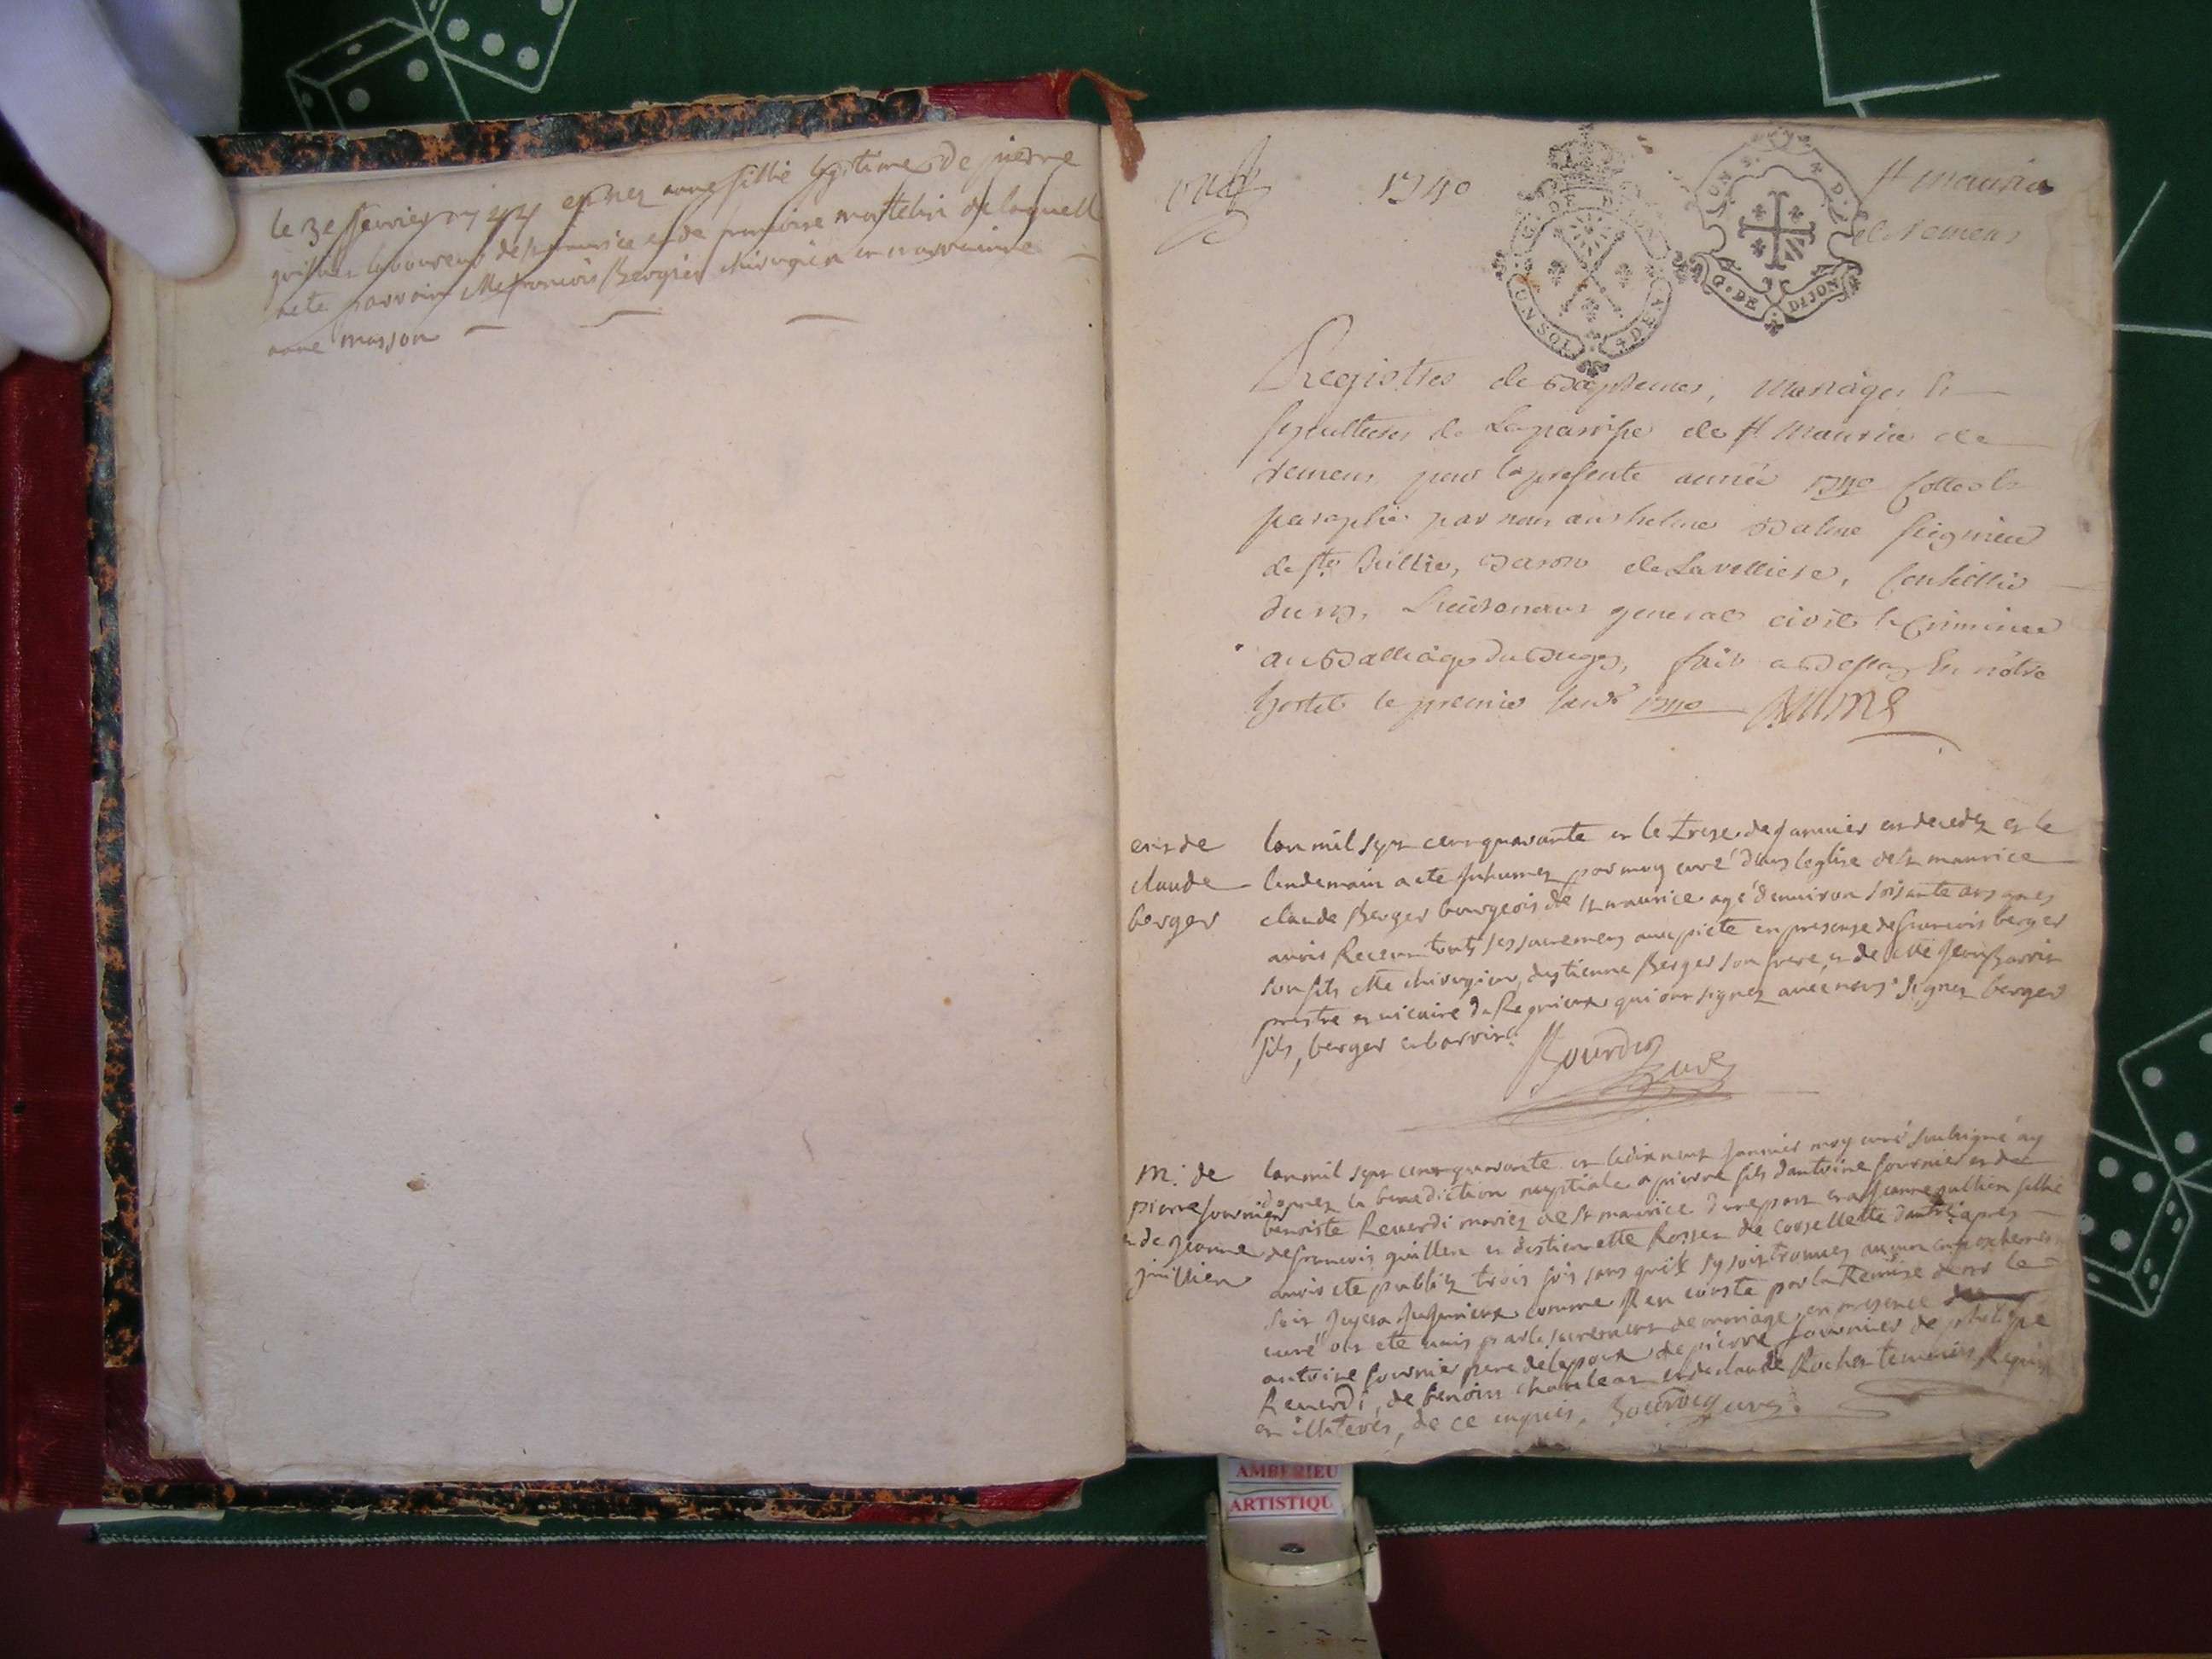 le 3e fevrier est nez anne fillie legitime de pierre
laboureur de st maurice et de francoise de laquell
a ete parrain Me francois Bergier chirurgien et marrainne
anne masson
1740
st maurice
de remens
UN SOL 4 DEN
UN S. 4 D.
G. DE DIJON
Registres de Baptemes, Mariages &
sepultures de La parroisse de st Maurice de
remens pour la presente année 1740 Cottes &
paraphé par nous anthelme Balme seigneur
de ste Jullie, Baron de La velliere, Conseillier
du roy, Lieutenant general civil & Criminel
au Balliage du Bugey, fait a Belley En nôtre
hostel le premier Janvr 1740 Balme
ent de
claude
berger
lan mil sept cent quarante et le treze de janvier est decedez et le
lendemain a ete Inhumez par moy curé dans leglise de st maurice
claude Berger bourgeois de st maurice agé denviron soisante ans apres
avoir Receu touts ses sacremens avec piete en presence de francois berger
son fils Me chirurgien, destienne Berger son frere, et de Me Jean Barrin
prestre et vicaire de qui ont signez avec nous. Signez berger
fils, berger et barrin.
Bourdin
curé
m: de
pierre fournier
et de Jeanne
guillien
lan mil sept cent quarante et le dix neuf Janvier moy curé soubsigné ay
donnez la benediction nuptiale a pierre fils dantoine fournier et de
benoiste Reverdi mariez de st maurice dune part et a Jeanne guillien fillie
de francois guillien et destiennette Rosset de dautre apres
avoir ete publiez trois fois sans quil sy soit trouvez aucun empechement
soit Juyeu comme Il en conste par la Remise dud sr le
curé ont ete unis par le sacrement de mariage en presence
antoine fournier pere de lepoux de pierre fournier de philippe
Reverdi, de benoist et de claude Rochet temoins Requis
et illiteres, de ce enquis. Bourdin curé.
AMBERIEU
ARTISTIQU